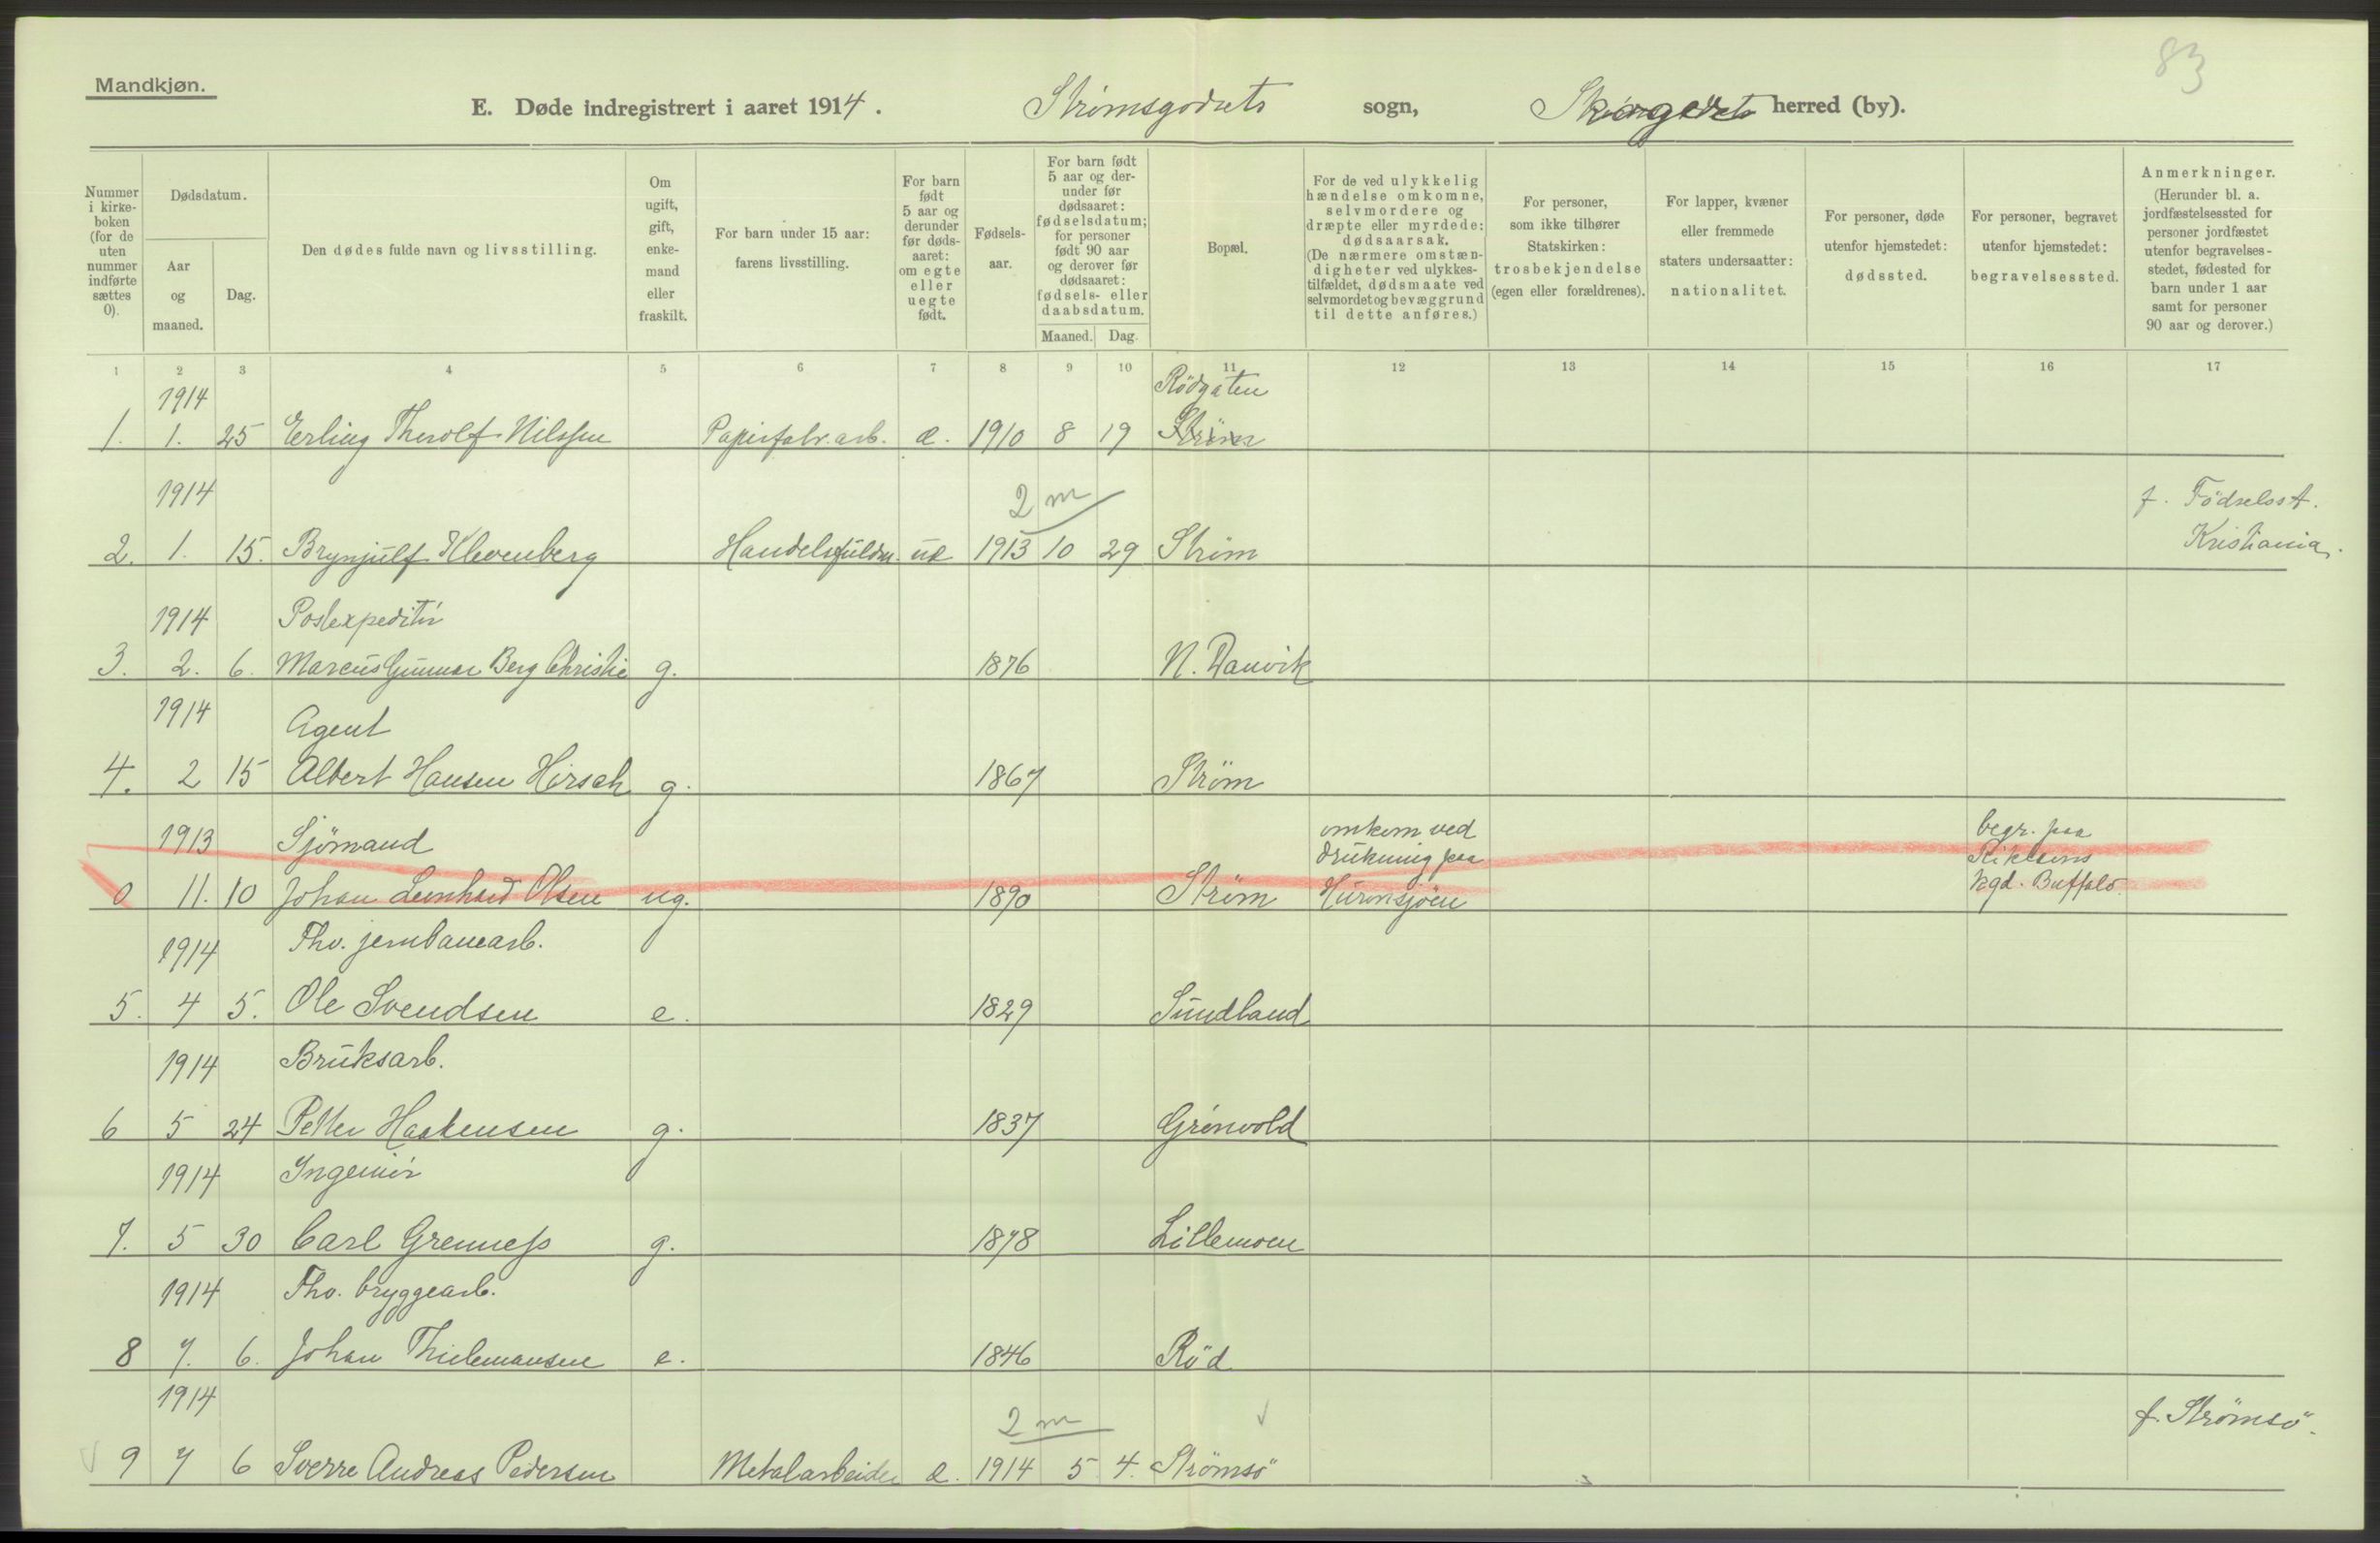 83
Mandkjøn.
E. Døde indregistrert i aaret 1914. Strømsgodsets sogn, herred (by).
Nummer i kirkeboken (for de uten nummer indførte sættes 0).
Dødsdatum.
Aar og maaned.
Dag.
Den dødes fulde navn og livsstilling.
Om ugift, gift, enkemand eller fraskilt.
For barn under 15 aar: farens livsstilling.
For barn født 5 aar og derunder før dødsaaret: om egte eller uegte født.
Fødselsaar.
For barn født 5 aar og derunder før dødsaaret: fødselsdatum; for personer født 90 aar og derover før dødsaaret: fødsels- eller daabsdatum.
Maaned. Dag.
Bopæl.
For de ved ulykkelig hændelse omkomne, selvmordere og dræpte eller myrdede: dødsaarsak. (De nærmere omstændigheter ved ulykkestilfældet, dødsmaate ved selvmordet og bevæggrund til dette anføres.)
For personer, som ikke tilhører Statskirken: trosbekjendelse (egen eller forældrenes).
For lapper, kvæner eller fremmede staters undersaatter: nationalitet.
For personer, døde utenfor hjemstedet: dødssted.
For personer, begravet utenfor hjemstedet: begravelsessted.
Anmerkninger. (Herunder bl. a. jordfæstelsessted for personer jordfæstet utenfor begravelsesstedet, fødested for barn under 1 aar samt for personer 90 aar og derover.)
1 2 3 4 5 6 7 8 9 10 11 12 13 14 15 16 17
1914 Rödgaten
1. 1. 25 Erling Thorolf Nilssen Papirfabr. arb. e. 1910 8 19 Ström
1914 2 m f. Födselsst.
2. 1. 15. Brynjulf Klevenberg Handelsfuldm. ue 1913 10 29 Strøm Kristiania.
1914 Postexpeditør
3. 2. 6. Marcus Gunnar Berg Christie g. 1876 N. Danvik
1914 Agent
4. 2 15 Albert Hansen Hirsch g. 1867 Ström
1913 Sjömand omkom ved drukning paa begr. paa
0 11. 10 Johan Leonhard Olsen ug. 1890 Ström Huronsjöen kgd. Buffalo
1914 Fhv. jernbanearb.
5. 4 5. Ole Svendsen e. 1829 Sundland
1914 Bruksarb.
6 5 24 Petter Haakensen g. 1837 Grønvold
1914 Ingeniør
7. 5 30 Carl Grenness g. 1878 Lillemoen
1914 Fhv. bryggearb.
8 7. 6. Johan Thielemansen e. 1846 Röd
1914 2 m f. Strömsö.
9 7 6 Sverre Andreas Pedersen Metalarbeider e. 1914 5 4. Strömsö